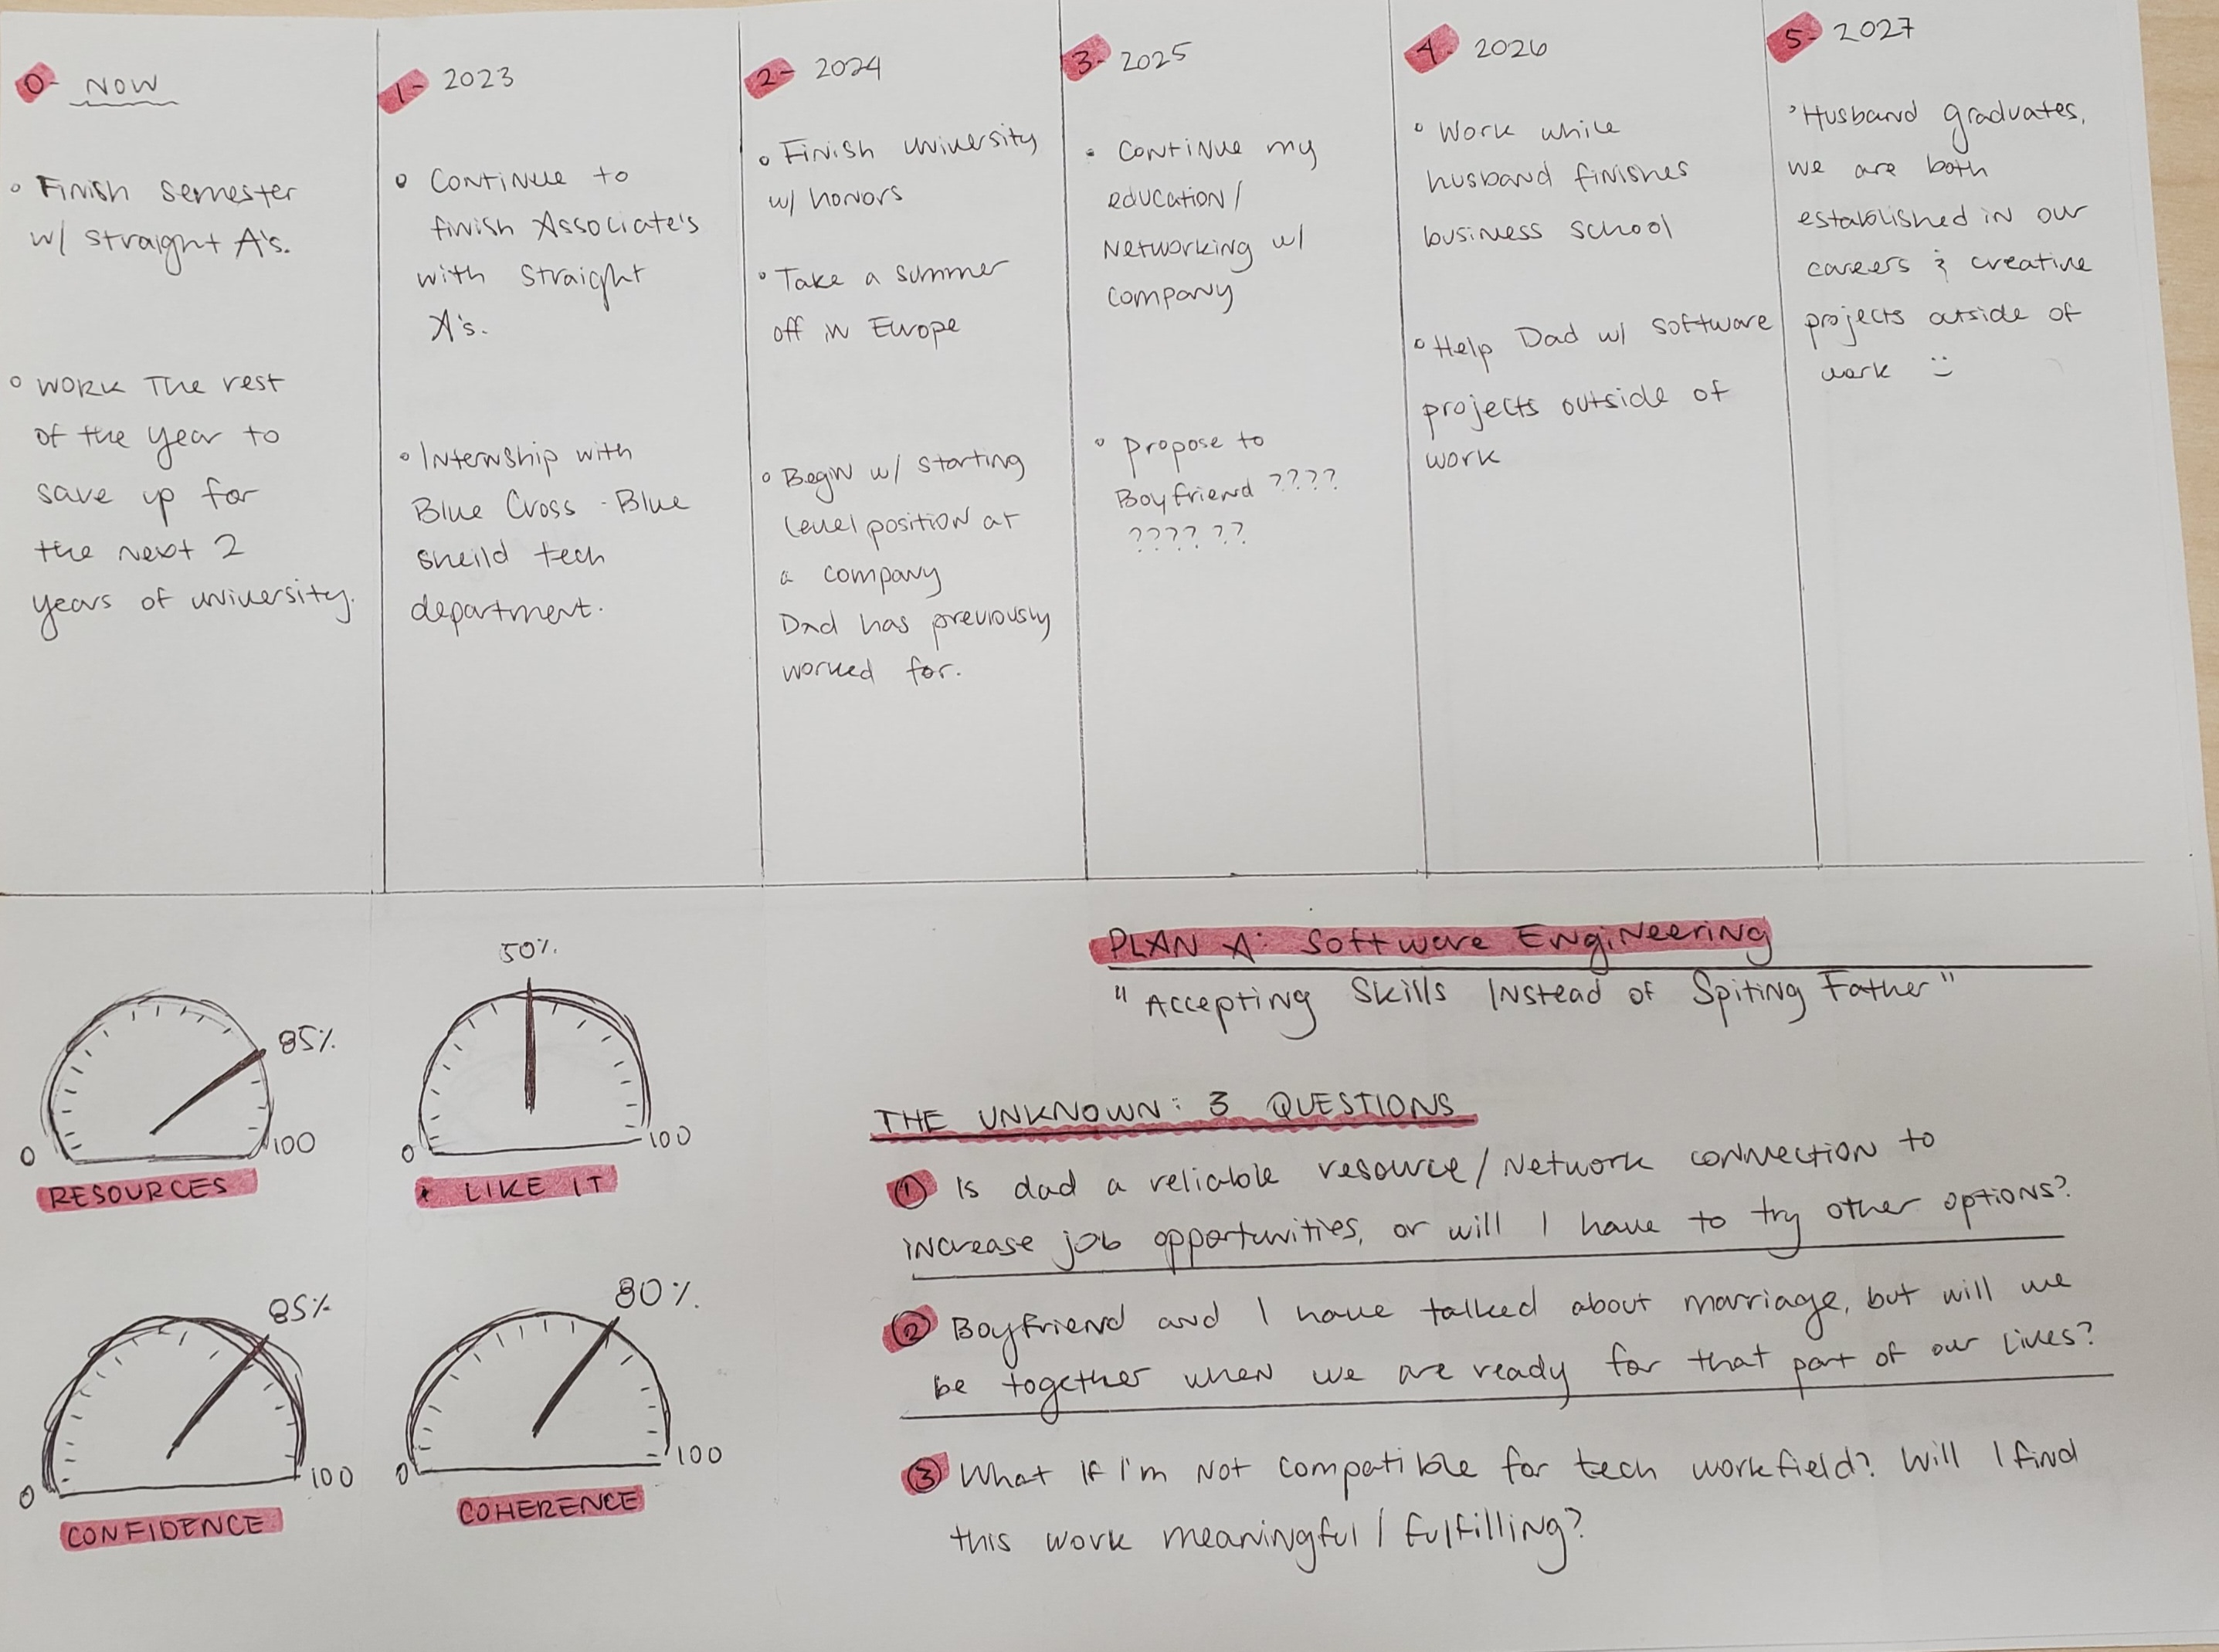 0- NOW
° Finish semester
w/ straight A's.
° Work The rest
of the year to
save up for
the next 2
years of university.
1- 2023
° Continue to
finish Associate's
with straight
A's.
° Internship with
Blue Cross - Blue
Sheild tech
department.
2- 2024
° Finish university
w/ honors
° Take a summer
off in Europe
° Begin w/ starting
level position at
a company
Dad has previously
worked for.
3- 2025
° Continue my
education/
Networking w/
company
° Propose to
Boyfriend ????
???? ??
4- 2026
° Work while
husband finishes
business school
° Help Dad w/ software
projects outside of
work
5- 2027
° Husband graduates,
we are both
established in our
careers & creative
projects outside of
work :)
85%
0 100
RESOURCES
50%
0 100
LIKE IT
85%
0 100
CONFIDENCE
80%
0 100
COHERENCE
PLAN A: Software Engineering
"Accepting Skills Instead of Spiting Father"
THE UNKNOWN: 3 QUESTIONS
① Is dad a reliable resource/Network connection to
increase job opportunities, or will I have to try other options?
② Boyfriend and I have talked about marriage, but will we
be together when we are ready for that part of our lives?
③ What if I'm not compatible for tech workfield? Will I find
this work meaningful/fulfilling?